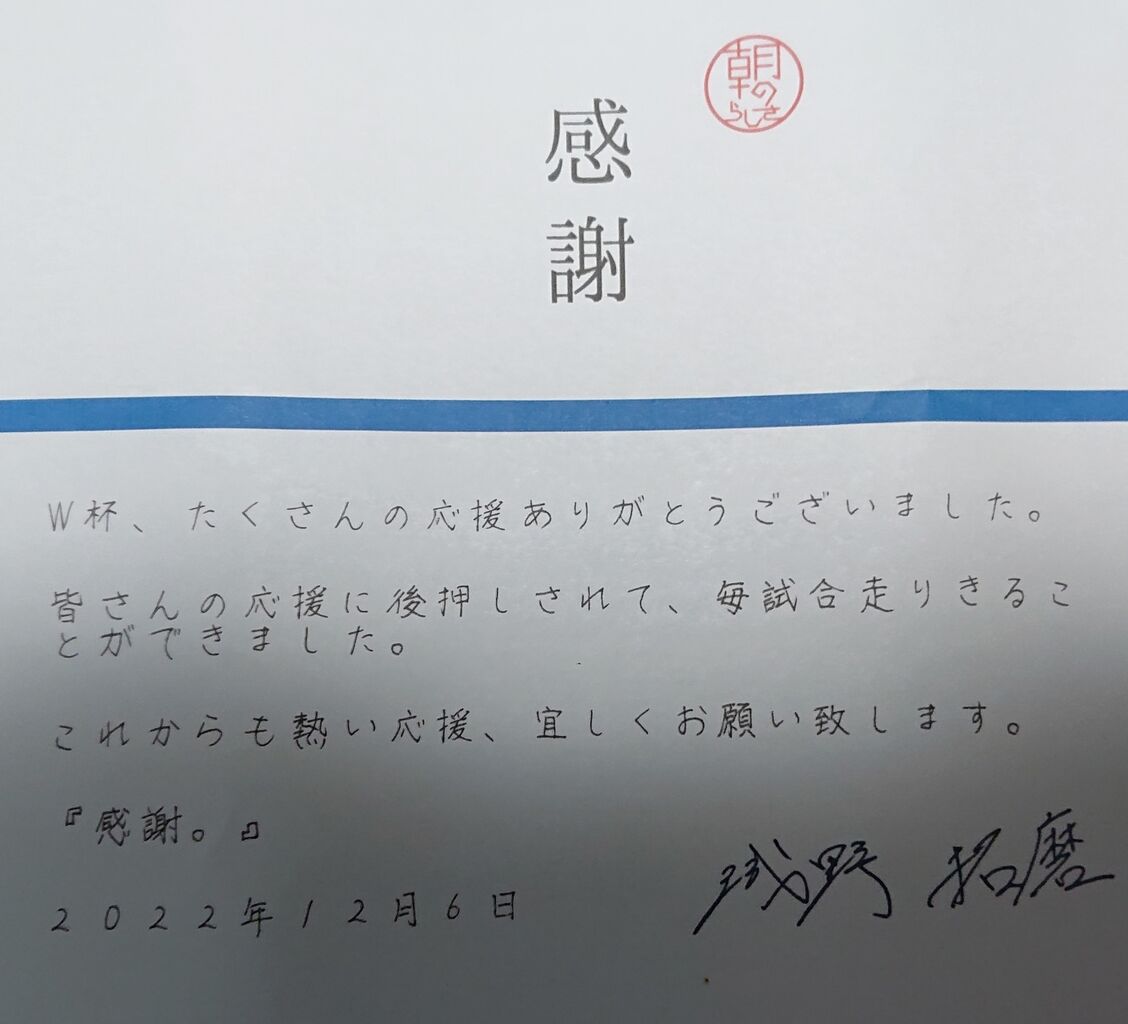 朝の
らしさ
感謝
W杯、たくさんの応援ありがとうございました。
皆さんの応援に後押しされて、毎試合走りきるこ
とができました。
これからも熱い応援、宜しくお願い致します。
『感謝。』
2022年12月6日
浅野 拓磨